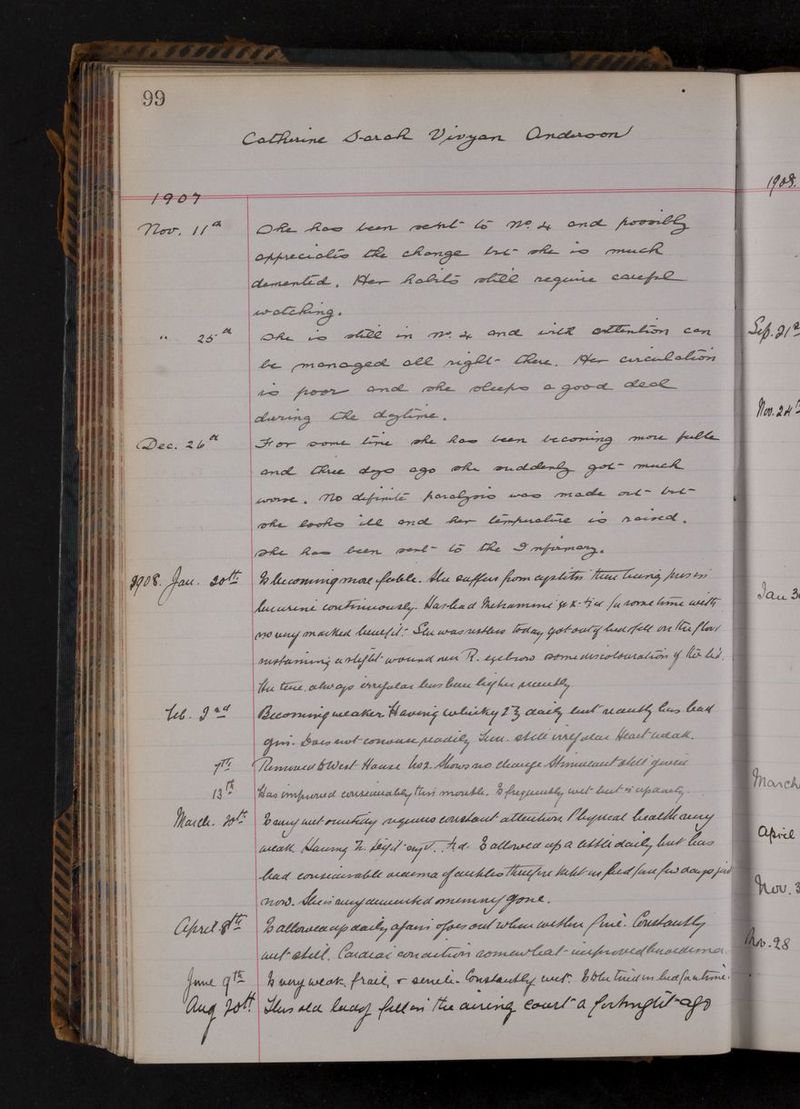 99
Catherine Sarah Vivyan Anderson
1907
Nov. 11th She has been sent to No. 4 and possibly
appreciates the change but she is much
demented. Her habits still require careful
watching.
" 25th She is still in No. 4 and with attention can
be managed all right there. Her circulation
is poor and she sleeps a good deal
during the daytime.
Dec. 26th For some time she has been becoming more feeble
and three days ago she suddenly got much
worse. No definite paralysis was made out but
she looks ill and her temperature is raised.
she has been sent to the Infirmary.
1908. Jan. 20th Is becoming more feeble. She suffers from cystitis there being pus in
her urine continuously. Has had for some time with
no very marked benefit. She was restless today got out of bed & fell on the floor
sustaining a slight wound over R. eyebrow some discolouration of the lid.
The always irregular has been higher recently
Feb. 2nd Becoming weaker Having whisky 2 ℥ daily but recently has had
gin. Does not converse readily still irregular Heart weak.
7th Removed to West House No 2. Shows no change Stimulant still given
13th Has improved considerably this month. Is frequently wet but is
March. 20th Is very wet requires constant attention Physical health very
weak. Having Is allowed up a little daily but has
had considerable oedema of ankles therefore kept in bed for few days just
now. She is very demented memory gone.
April 8th Is allowed up daily again & goes out when weather fine. Constantly
wet still. Cardiac condition somewhat improved oedema
June 9th Is very weak, frail, & senile. Constantly wet. To be tried in bed for a time.
Aug 20th This old lady fell in the airing court a fortnight ago
1908.
Sep. 21st
Nov. 24th
Jan 3
March
April
Nov. 3
Nov. 28